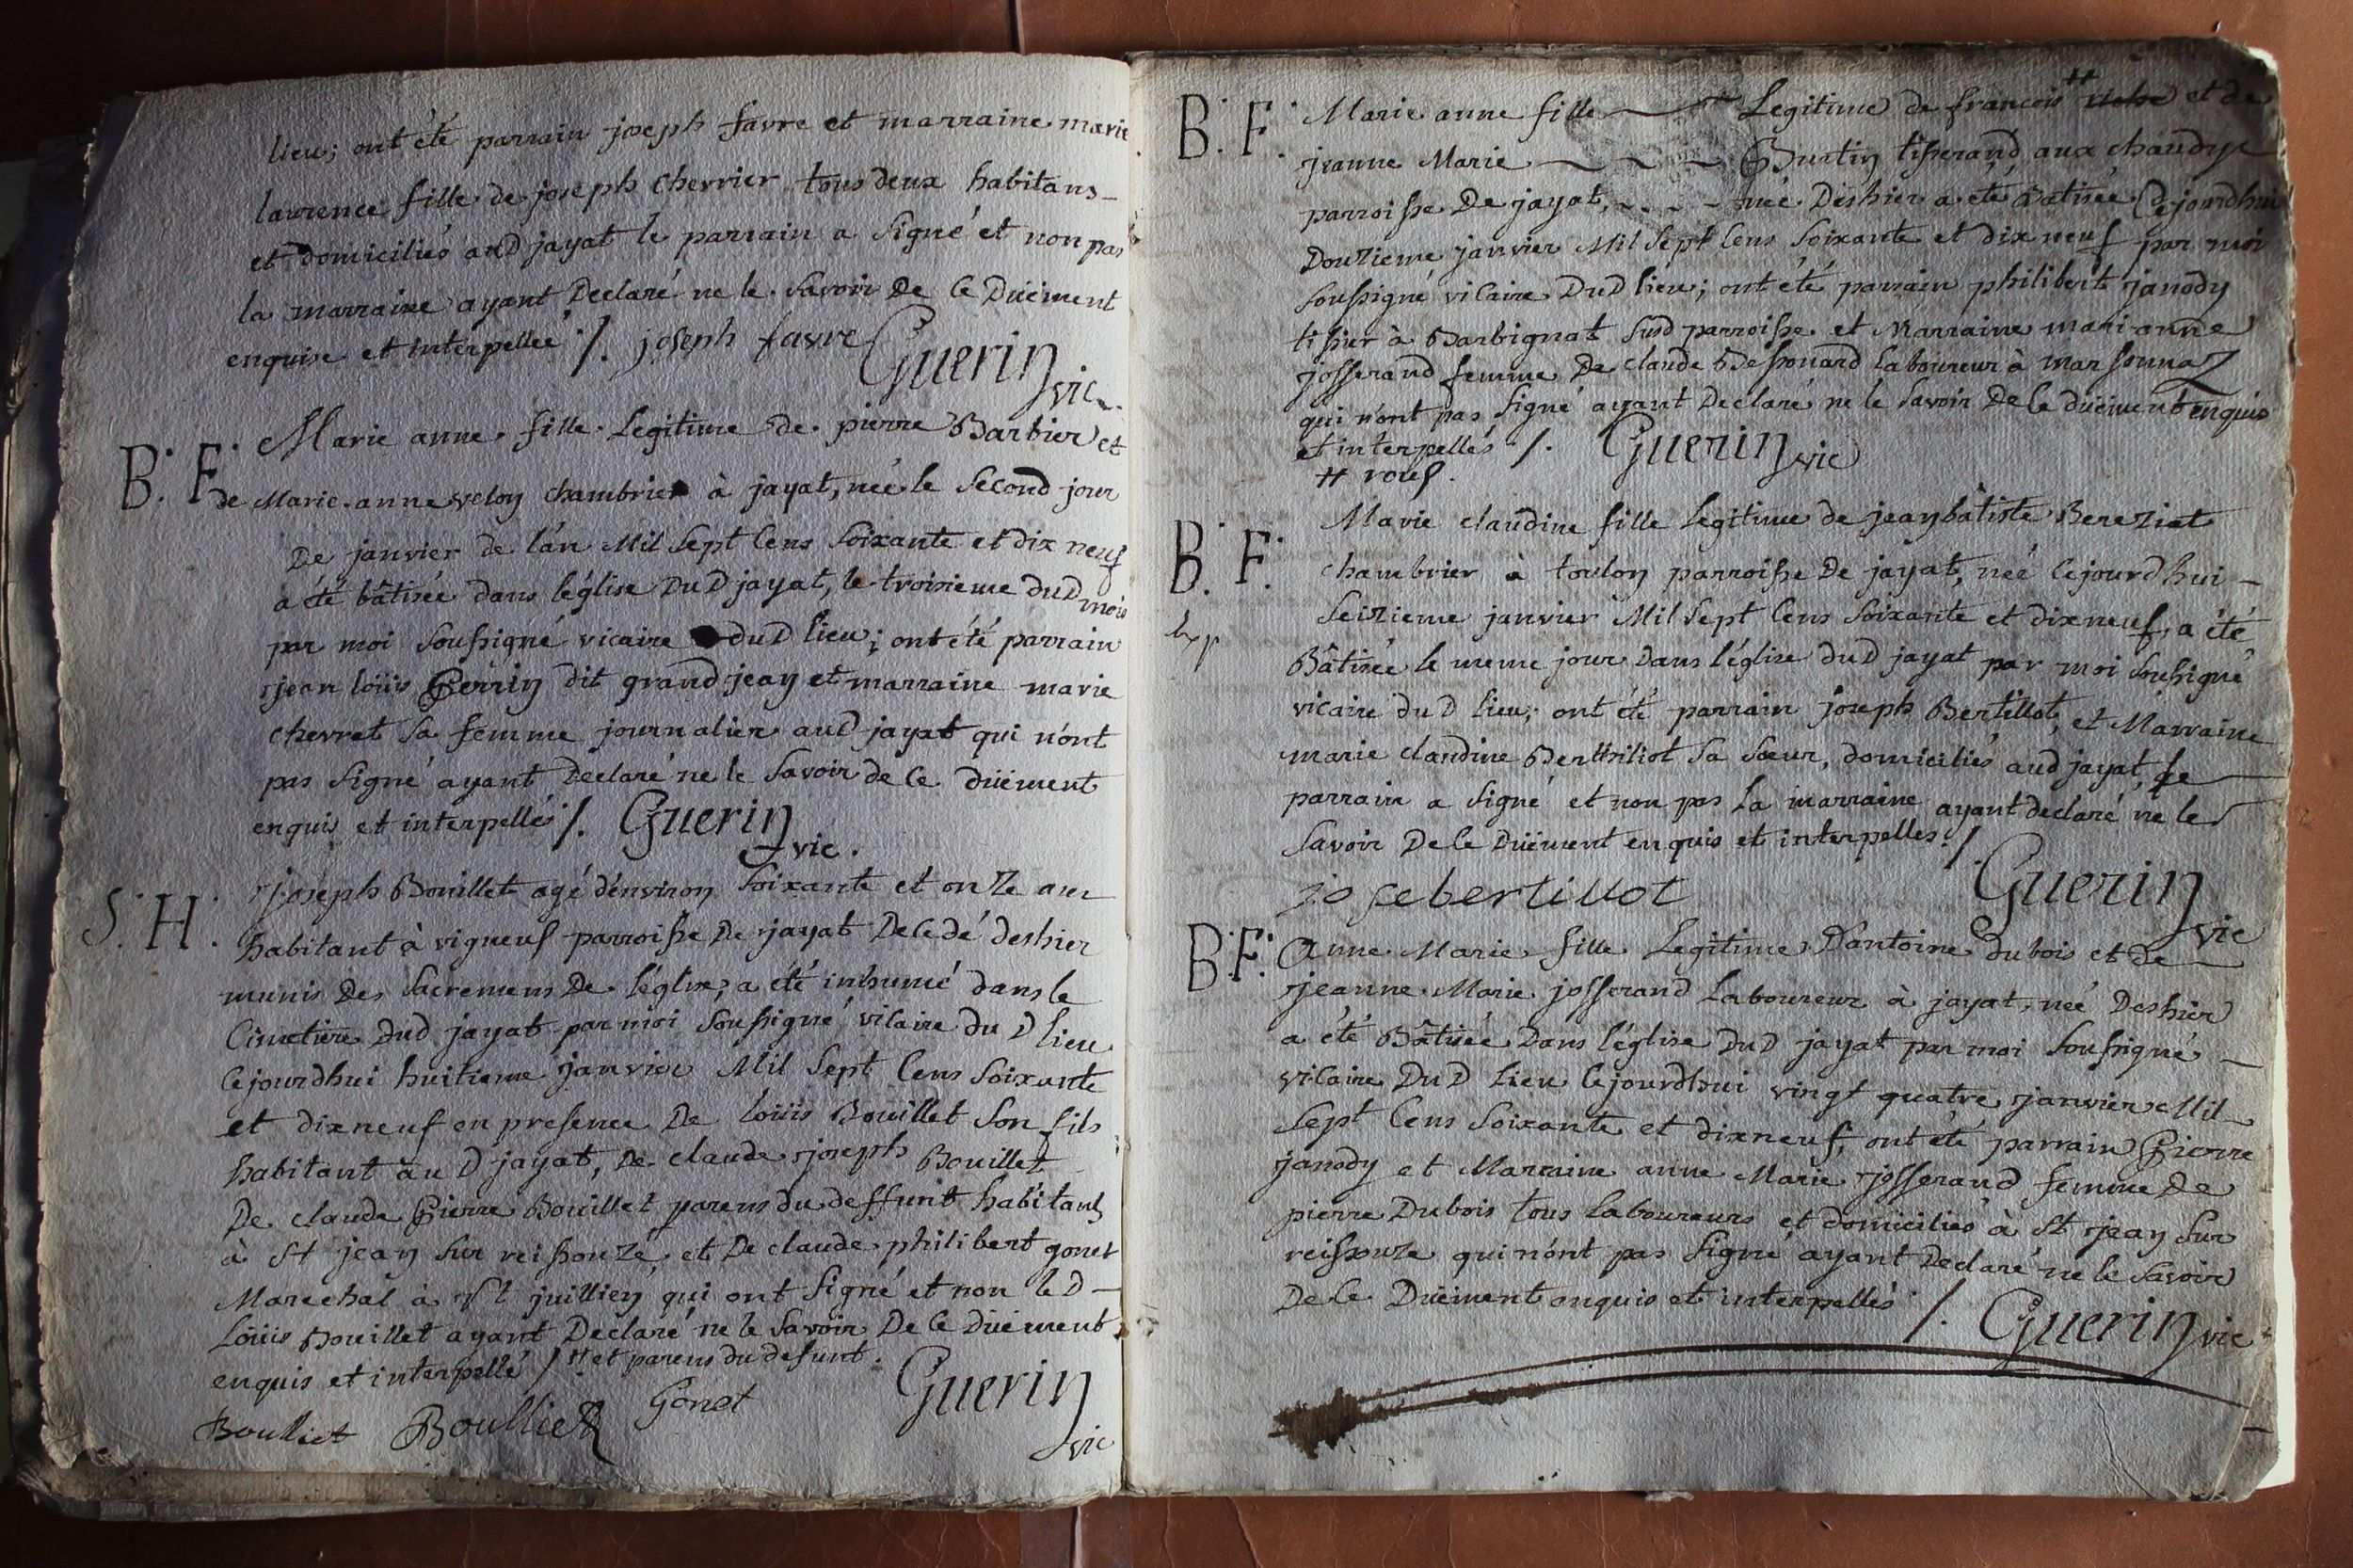 lieu; ont été parrain joseph favre et marraine marie
laurence fille de joseph chevrier tous deux habitans
et domiciliés aud jayat le parrain a signé et non pas
la marraine ayant declaré ne le savoir de ce düement
enquise et interpellée /. joseph favre Guerin
vic.
B. F. Marie anne fille legitime de pierre Barbier et
de Marie anne veloy chambrier à jayat, née le second jour
De janvier de l'an Mil sept cens soixante et dix neuf
a été bâtisée dans l'église DuD jayat, le troisieme duD mois
par moi soussigné vicaire duD lieu; ont été parrain
jean loüis Perrin dit grand jean et marraine marie
chevret sa femme journalier auD jayat qui n'ont
pas signé ayant Declaré ne le savoir de ce düement
enquis et interpellés /. Guerin
vic.
S. H. joseph Bouillet agé d'environ soixante et onze ans
habitant à vigneuf parroisse De jayat Decedé deshier
munis Des sacremens De l'église, a été inhumé dans le
Cimetiere Dud jayat par moi soussigné vicaire du D lieu
cejourdhui huitieme janvier Mil sept cens soixante
et dixneuf en presence De loüis Bouillet son fils
habitant au D jayat, De claude joseph Bouillet
De claude Pierre Bouillet parens du deffunt habitants
à St jean sur reissouze et De claude philibert gonet
Marechal à St juillien qui ont signé et non le D
Loüis Bouillet ayant Declaré ne le savoir De ce düement
enquis et interpellé /. # et parens du defunt.
Boulliet Boullier Gonet Guerin
vic
B. F. Marie anne fille Legitime de francois # et de
jeanne Marie Burtin tisserand aux chaudys
parroisse De jayat, née Deshier a été batisée Cejourdhui
Douzieme janvier Mil sept cens soixante et dix neuf par moi
soussigné vicaire DuD lieu; ont été parrain philibert janody
tissier à Barbignat susd parroisse et Marraine marianne
josserand femme De claude Bessonard laboureur à marsonnaz
qui n'ont pas signé ayant Declaré ne le savoir De ce düement enquis
et interpellés /. Guerin vic
#
B. F. Marie claudine fille legitime de jean bâtiste Bereziat
chambrier à toulon parroisse De jayat, née cejourdhui
seizieme janvier Mil sept cens soixante et dixneuf, a été
Bâtisée le meme jour Dans l'église duD jayat par moi soussigné
vicaire duD lieu; ont été parrain joseph Bertillot, et Marraine
marie claudine Berthiliot sa sœur, domiciliés aud jayat, le
parrain a signé et non pas la marraine ayant declaré ne le
savoir De ce Düement enquis et interpelles /.
josebertillot Guerin
vic
B. F. Anne Marie fille Legitime D'antoine dubois et de
jeanne Marie josserand Laboureur à jayat, née Deshier
a été Bâtisée Dans l'église DuD jayat par moi soussigné
vicaire DuD lieu cejourdhui vingt quatre janvier Mil
sept cens soixante et dixneuf, ont été parrain Pierre
janody et Marraine anne Marie josserand femme De
pierre Dubois tous laboureurs et domiciliés à St jean sur
reissouze qui n'ont pas signé ayant Declaré ne le savoir
De ce Düement enquis et interpellés
/. Guerin vic